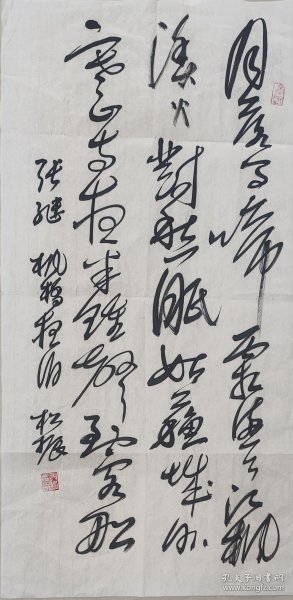 月落乌啼霜满天江枫
渔火对愁眠姑苏城外
寒山寺夜半钟声到客船
张继 枫桥夜泊 松振
孔夫子旧书网